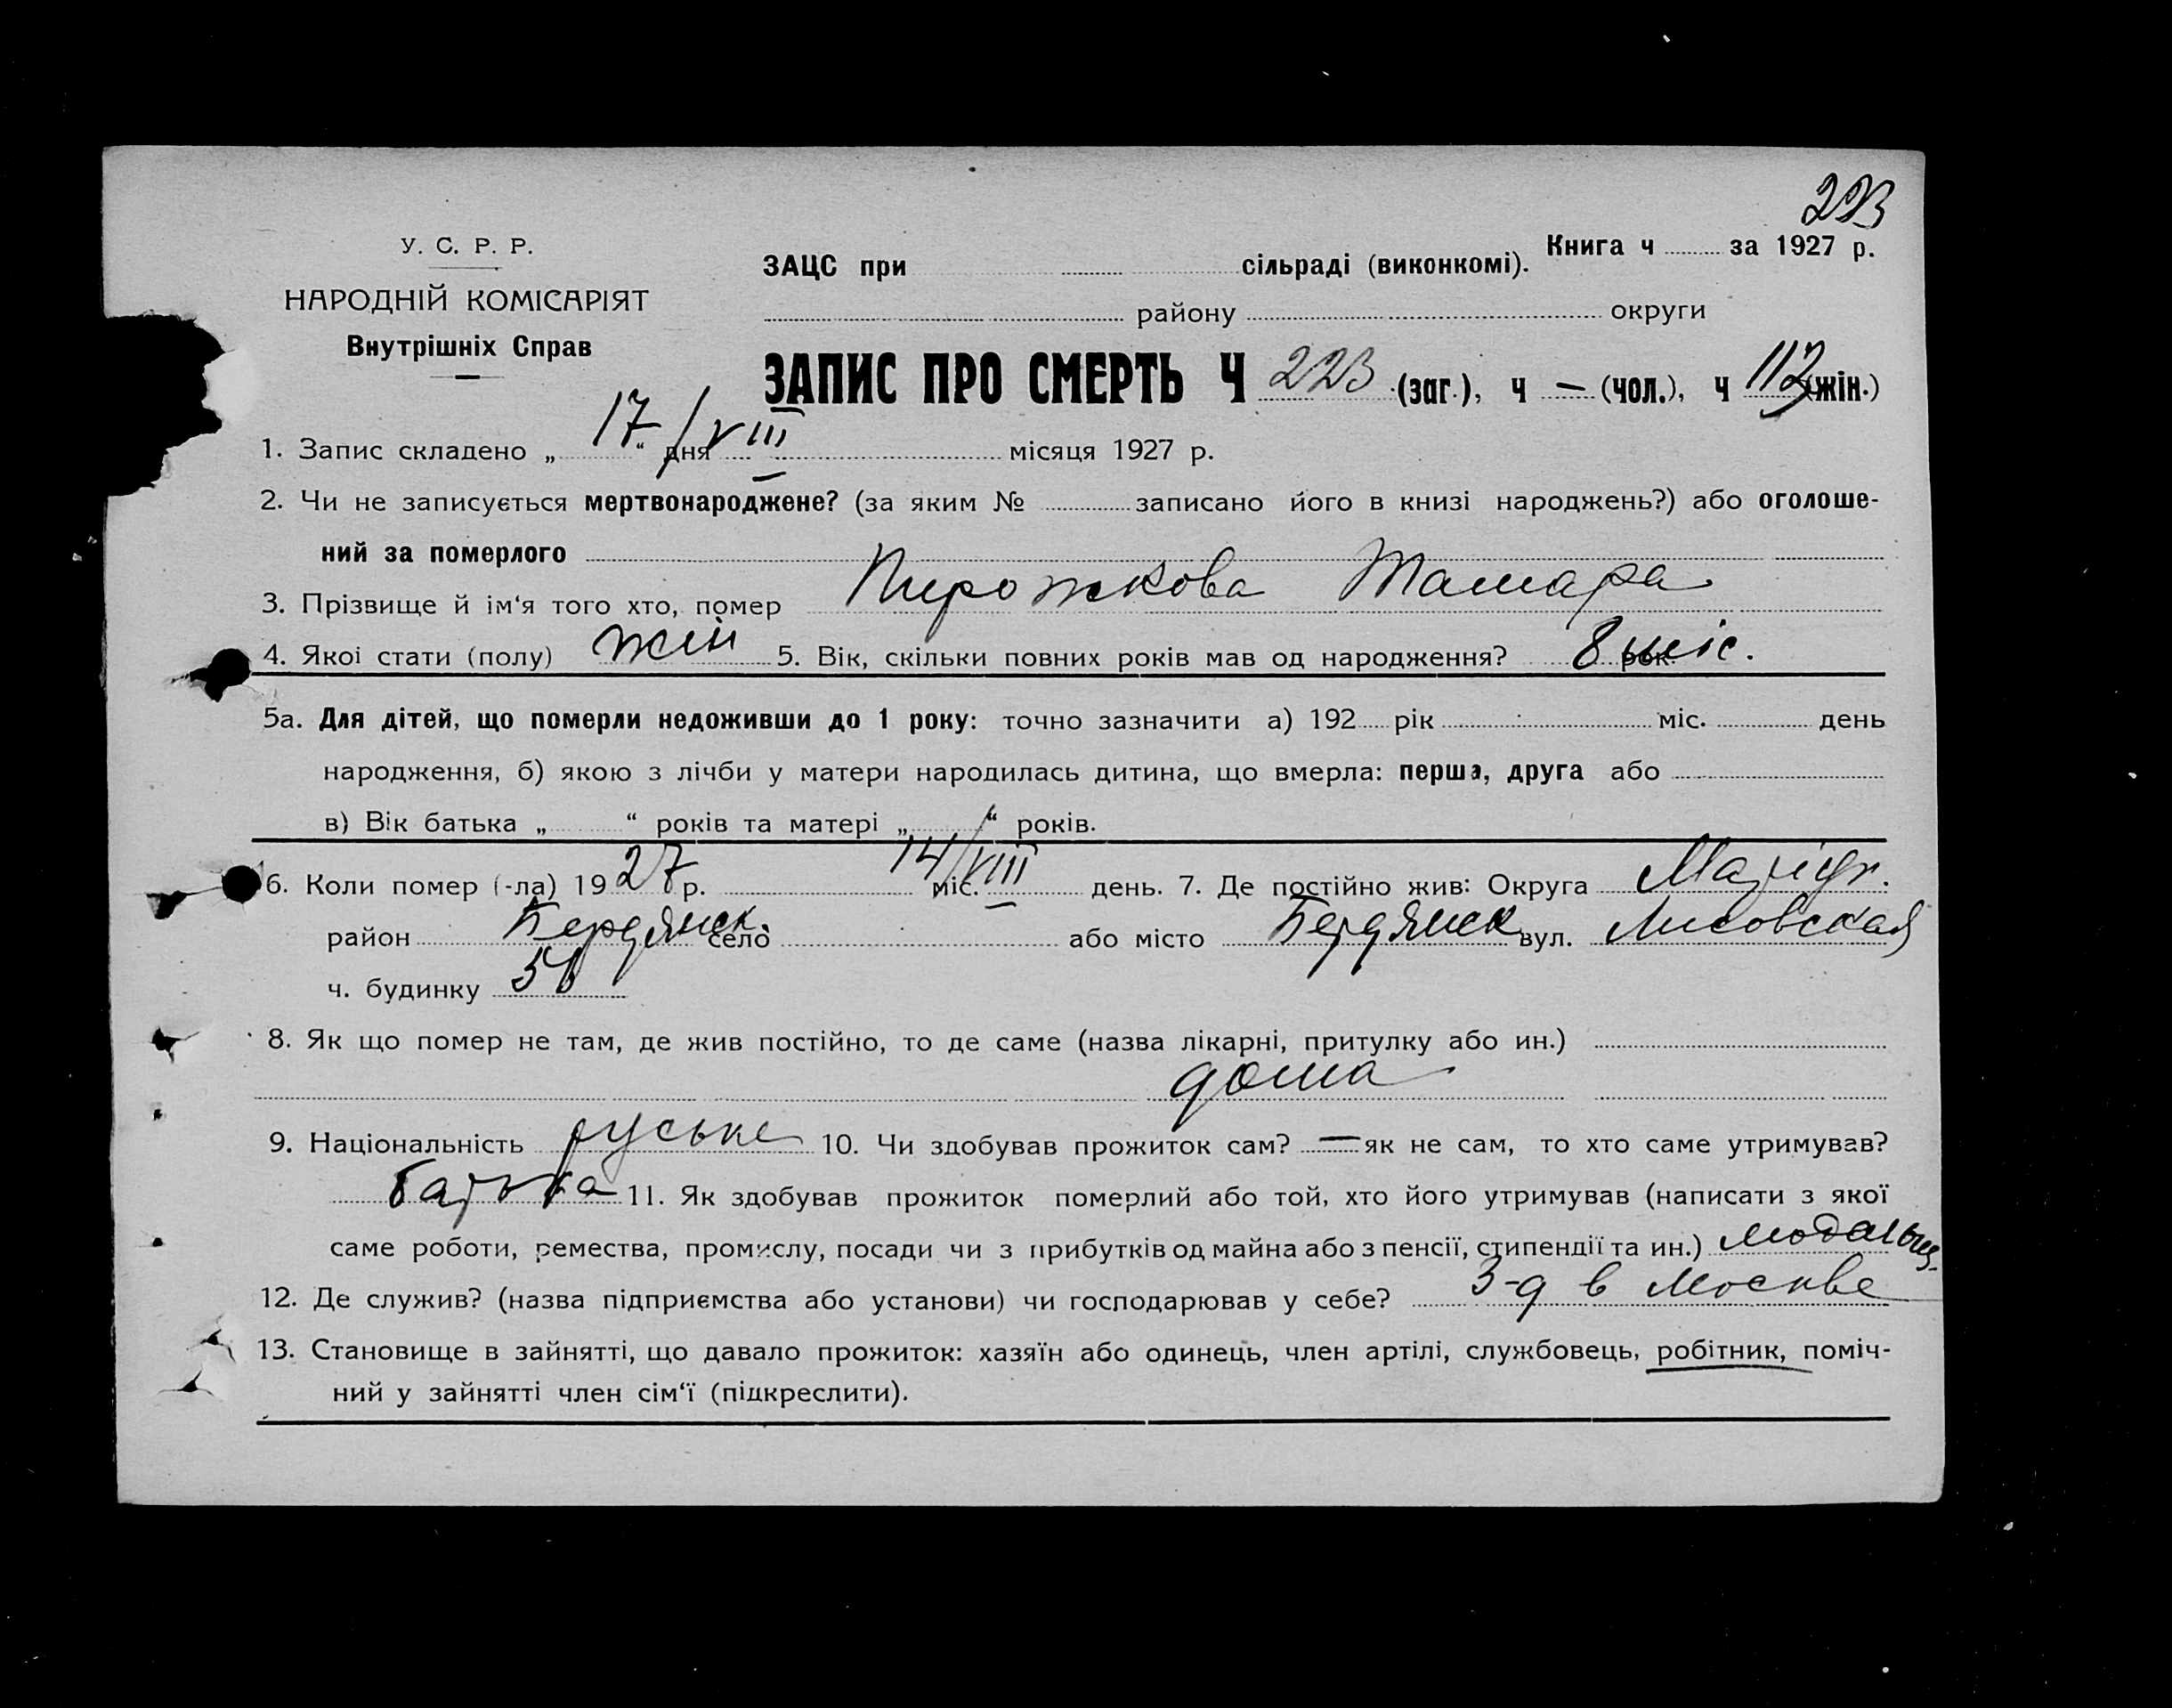 223
У. С. Р. Р.
НАРОДНІЙ КОМІСАРІЯТ
Внутрішніх Справ
Книга ч за 1927 р.
ЗАЦС при сільраді (виконкомі).
району округи
ЗАПИС ПРО СМЕРТЬ Ч 223 (заг.), ч — (чол.), ч 112 (жін.)
1. Запис складено „ 17 “ дня / VIII місяця 1927 р.
2. Чи не записується мертвонароджене? (за яким № записано його в книзі народжень?) або оголоше-
ний за померлого
3. Прізвище й ім‘я того хто, помер Пирожкова Тамара
4. Якоі стати (полу) жін 5. Вік, скільки повних років мав од народження? 8 міс. рок.
5а. Для дітей, що померли недоживши до 1 року: точно зазначити а) 192 рік міс. день
народження, б) якою з лічби у матери народилась дитина, що вмерла: перша, друга або
в) Вік батька „ “ років та матері „ “ років.
6. Коли помер (-ла) 1927 р. 14/VIII міс. день. 7. Де постійно жив: Округа Маріуп.
район Бердянск. село або місто Бердянск вул. Лисовская
ч. будинку
8. Як що помер не там, де жив постійно, то де саме (назва лікарні, притулку або ин.)
дома
9. Національність руське 10. Чи здобував прожиток сам? — як не сам, то хто саме утримував?
батька 11. Як здобував прожиток померлий або той, хто його утримував (написати з якої
саме роботи, ремества, промислу, посади чи з прибутків од майна або з пенсії, стипендії та ин.) модельщ.
12. Де служив? (назва підприємства або установи) чи господарював у себе? З-д в Москве
13. Становище в зайнятті, що давало прожиток: хазяїн або одинець, член артілі, службовець, робітник, поміч-
ний у зайнятті член сім‘ї (підкреслити).